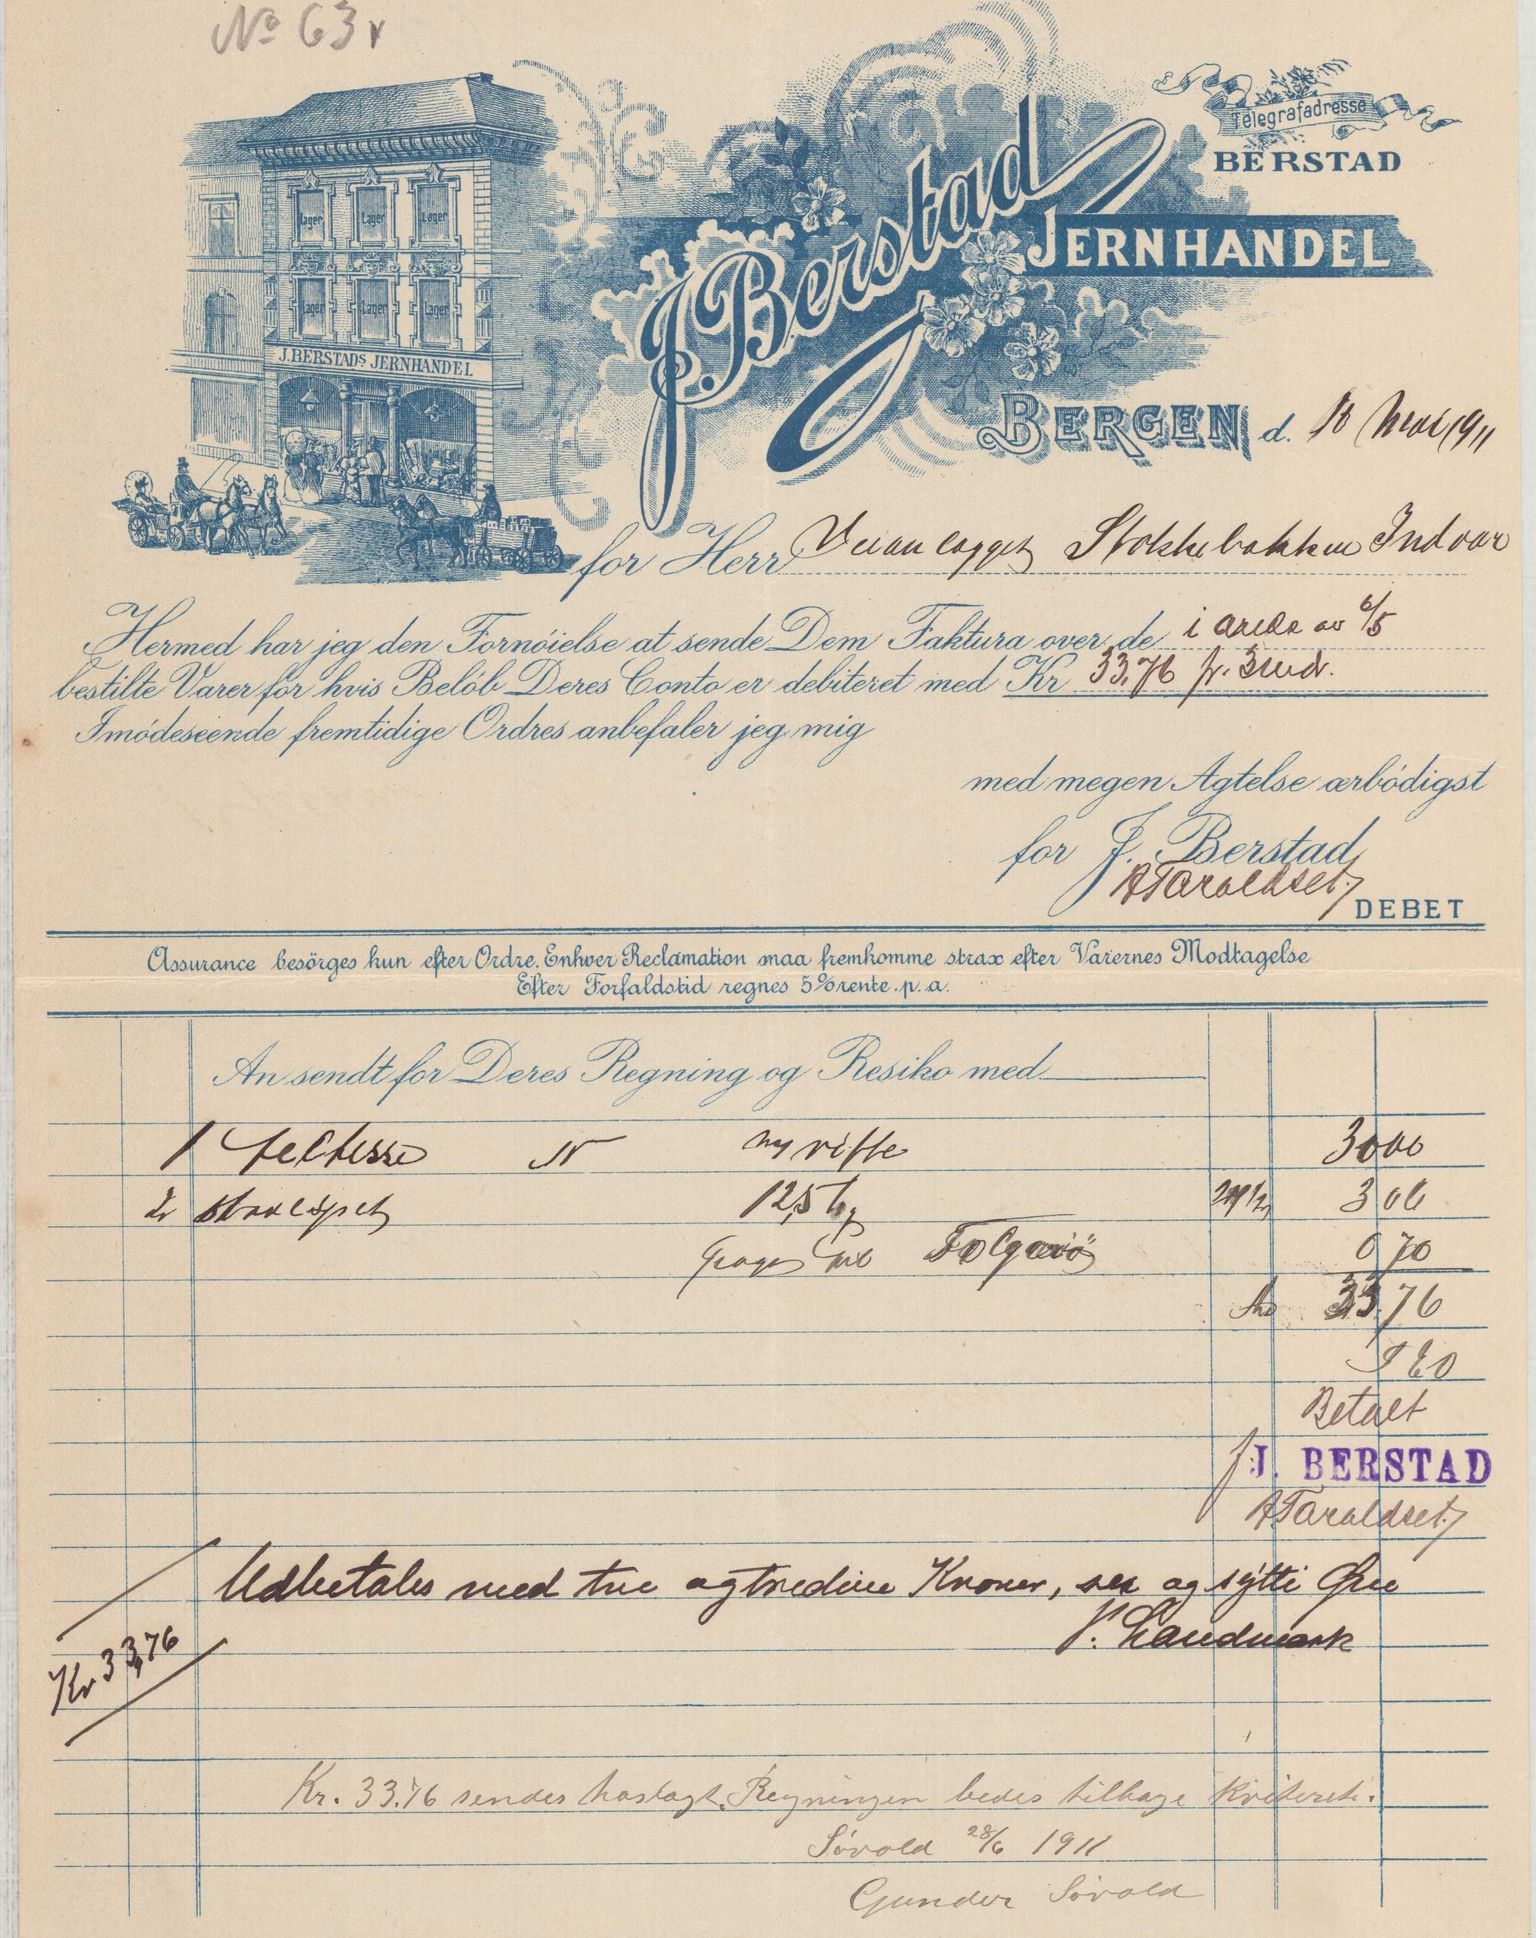 No 63
Telegrafadresse
BERSTAD
J. Berstad
JERNHANDEL
Lager Lager Lager
Lager Lager Lager
J. BERSTADS JERNHANDEL
BERGEN d. 10 Mai 1911
for Herr Veianlegget Stokkebakken Indvær
Hermed har jeg den Fornöielse at sende Dem Faktura over de i ordre av 6/5
bestilte Varer for hvis Belöb Deres Conto er debiteret med Kr 33,76 pr. 3 md.
Imödeseende fremtidige Ordres anbefaler jeg mig
med megen Agtelse ærbödigst
for J. Berstad
A Taraldset
DEBET
Assurance besörges kun efter Ordre. Enhver Reclamation maa fremkomme strax efter Varernes Modtagelse
Efter Forfaldstid regnes 5% rente. p. a.
An sendt for Deres Regning og Resiko med
1 feltesse N 30 00
2 12,5 kg 24 1/2 3 06
0 70
33,76
Betalt
f J. BERSTAD
A Taraldset
Udbetales med tre og tredive Kroner, sex og sytti Øre
Landmark
Kr 33,76
Kr. 33.76 sendes hoslagt. Regningen bedes tilbage kviteret.
Sørvold 28/6 1911
Gunder Sørvold